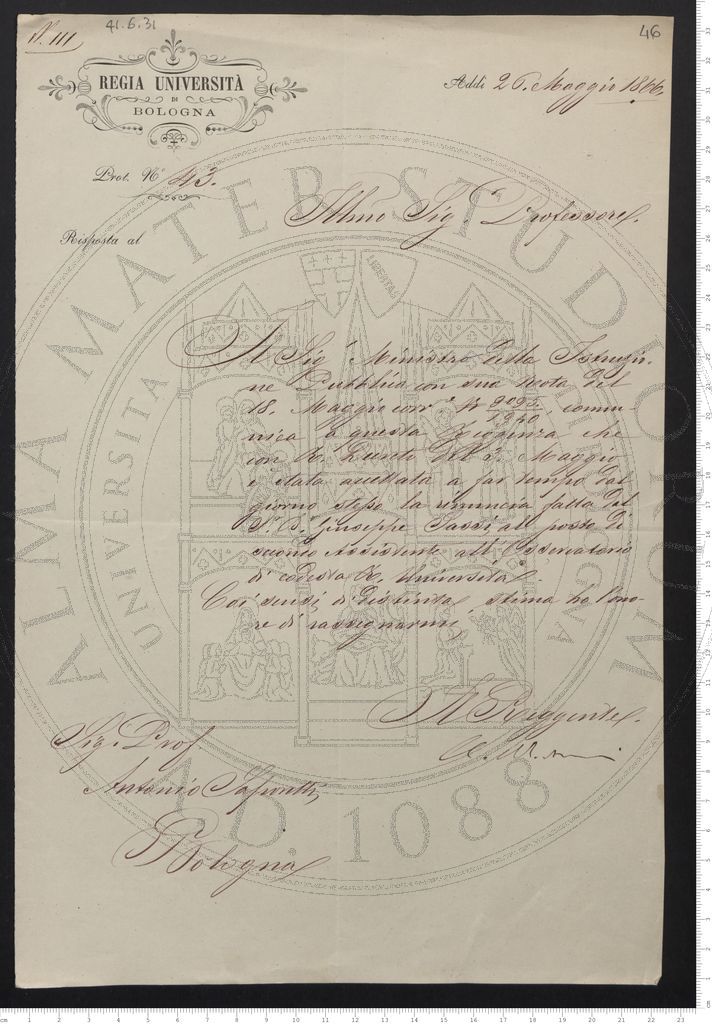 41.6.31
46
N. 111
REGIA UNIVERSITÀ
DI
BOLOGNA
Addì 26. Maggio 1866.
Prot. N° 43.
Illmo Sig. Professore
Risposta al
Il Sig. Ministro della Istruzio-
ne Pubblica con sua Nota del
18. Maggio corr. N° comu-
nica a questa Reggenza che
con R. Decreto del 3. Maggio
è stata accettata a far tempo dal
giorno stesso la rinuncia fatta dal
S. D. Giuseppe Sassi al posto di
secondo Assistente all'Osservatorio
di codesta R. Università.
Coi sensi di distinta stima ho l'ono-
re di rassegnarmi
Il Reggente
Sig. Prof.
Antonio Saporetti
Bologna
ALMA MATER STUDIORUM
UNIVERSITÀ BOLOGNA
LIBERTAS
A.D. 1088